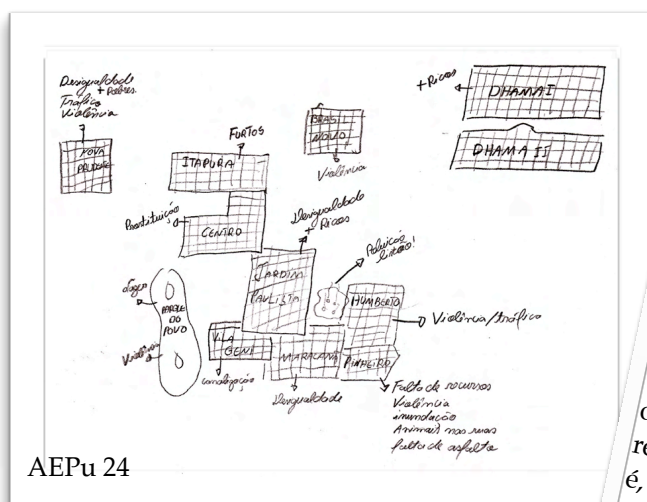 Desigualdade
+ Pobres
Tráfico
Violência
NOVA
PRUDENTE
FURTOS
ITAPURA
BRASIL
NOVO
Violência
+Ricos
DHAMA I
DHAMA II
Prostituição
CENTRO
Desigualdade
+ Ricos
JARDIM
PAULISTA
HUMBERTO
Violência/tráfico
PARQUE
DO
POVO
Violência
VILA
GENI
canalização
MARACANÃ
Desigualdade
PINHEIRO
Falta de recursos
Violência
inundação
Animais nas ruas
falta de asfalto
AEPu 24
é,